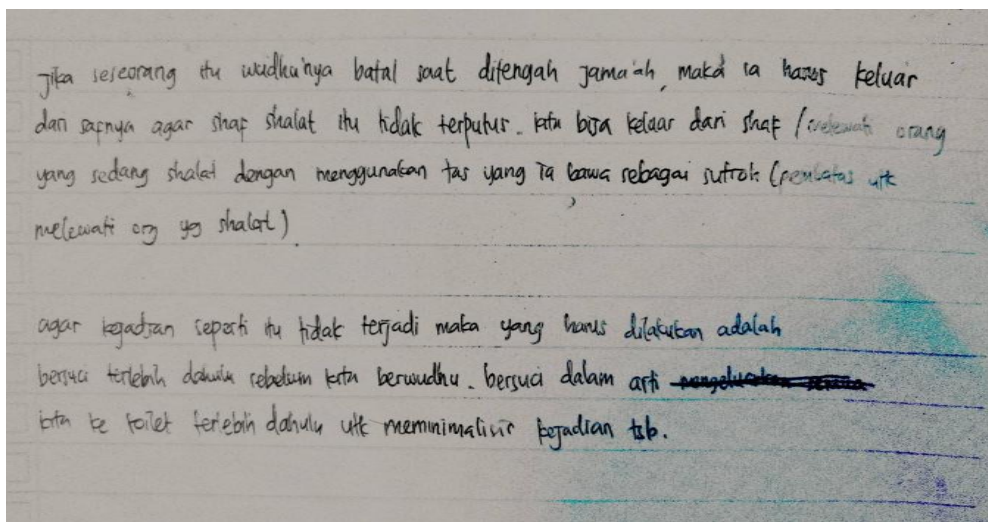 jika seseorang itu wudhu'nya batal saat ditengah jama'ah, maka ia harus keluar
dari safnya agar shaf shalat itu tidak terputus. kita bisa keluar dari shaf / melewati orang
yang sedang shalat dengan menggunakan tas yang ia bawa sebagai sutroh (pembatas utk
melewati org yg shalat)
agar kejadian seperti itu tidak terjadi maka yang harus dilakukan adalah
bersuci terlebih dahulu sebelum kita berwudhu. bersuci dalam arti
kita ke toilet terlebih dahulu utk meminimalisir kejadian tsb.